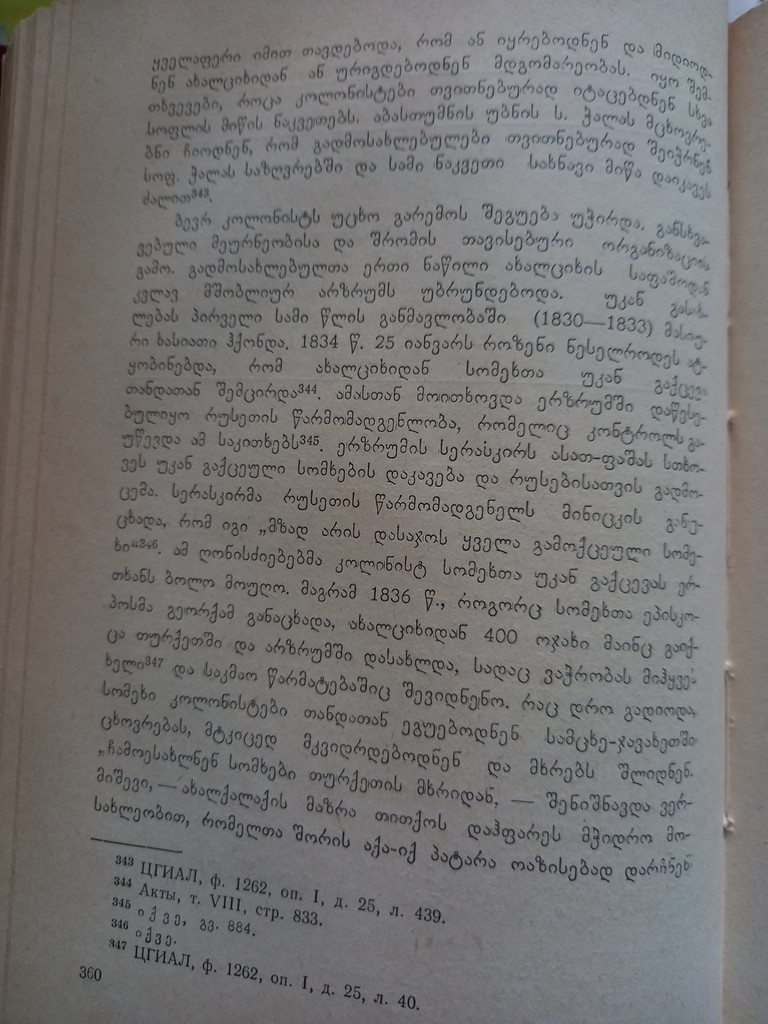 ყველაფერი იმით თავდებოდა, რომ ან იყრებოდნენ და მიდიოდ-
ნენ ახალციხიდან ან ურიგდებოდნენ მდგომარეობას. იყო შემ-
თხვევები, როცა კოლონისტები თვითნებურად იტაცებდნენ სხვა
სოფლის მიწის ნაკვეთებს. აბასთუმნის უბნის ს. ჭალას მცხოვრე-
ბნი ჩიოდნენ, რომ გადმოსახლებულები თვითნებურად შეიჭრნენ
სოფ. ჭალას საზღვრებში და სამი ნაკვეთი სახნავი მიწა დაიკავეს
ძალით³⁴³.
ბევრ კოლონისტს უცხო გარემოს შეგუება უჭირდა. განსხვა-
ვებული მეურნეობისა და შრომის თავისებური ორგანიზაციის
გამო. გადმოსახლებულთა ერთი ნაწილი ახალციხის საფაშოდან
კვლავ მშობლიურ არზრუმს უბრუნდებოდა. უკან გასახ-
ლებას პირველი სამი წლის განმავლობაში (1830—1833) მასიუ-
რი ხასიათი ჰქონდა. 1834 წ. 25 იანვარს როზენი ნესელროდეს ატ-
ყობინებდა, რომ ახალციხიდან სომეხთა უკან გაქცევა
თანდათან შემცირდა³⁴⁴. ამასთან მოითხოვდა ერზრუმში დაწესე-
ბულიყო რუსეთის წარმომადგენლობა, რომელიც კონტროლს გა-
უწევდა ამ საკითხებს³⁴⁵. ერზრუმის სერასკირს ასათ-ფაშას სთხო-
ვეს უკან გაქცეული სომხების დაკავება და რუსებისათვის გადმო-
ცემა. სერასკირმა რუსეთის წარმომადგენელს მინიცკის განუ-
ცხადა, რომ იგი „მზად არის დასაჯოს ყველა გამოქცეული სომე-
ხი“³⁴⁶. ამ ღონისძიებებმა კოლინისტ სომეხთა უკან გაქცევას ერ-
თხანს ბოლო მოუღო. მაგრამ 1836 წ., როგორც სომეხთა ეპისკო-
პოსმა გეორქამ განაცხადა, ახალციხიდან 400 ოჯახი მაინც გაიქ-
ცა თურქეთში და არზრუმში დასახლდა, სადაც ვაჭრობას მიჰყვე-
ხელი³⁴⁷ და საკმაო წარმატებაშიც შევიდნენო. რაც დრო გადიოდა,
სომეხი კოლონისტები თანდათან ეგუებოდნენ სამცხე-ჯავახეთში
ცხოვრებას, მტკიცედ მკვიდრდებოდნენ და მხრებს შლიდნენ.
„ჩამოესახლნენ სომხები თურქეთის მხრიდან, — შენიშნავდა ვერ-
მიშევი, — ახალქალაქის მაზრა თითქოს დაჰფარეს მჭიდრო მო-
სახლეობით, რომელთა შორის აქა-იქ პატარა ოაზისებად დარჩნენ
³⁴³ ЦГИАЛ, ф. 1262, оп. I, д. 25, л. 439.
³⁴⁴ Акты, т. VIII, стр. 833.
³⁴⁵ იქვე, გვ. 884.
³⁴⁶ იქვე.
³⁴⁷ ЦГИАЛ, ф. 1262, оп. I, д. 25, л. 40.
360